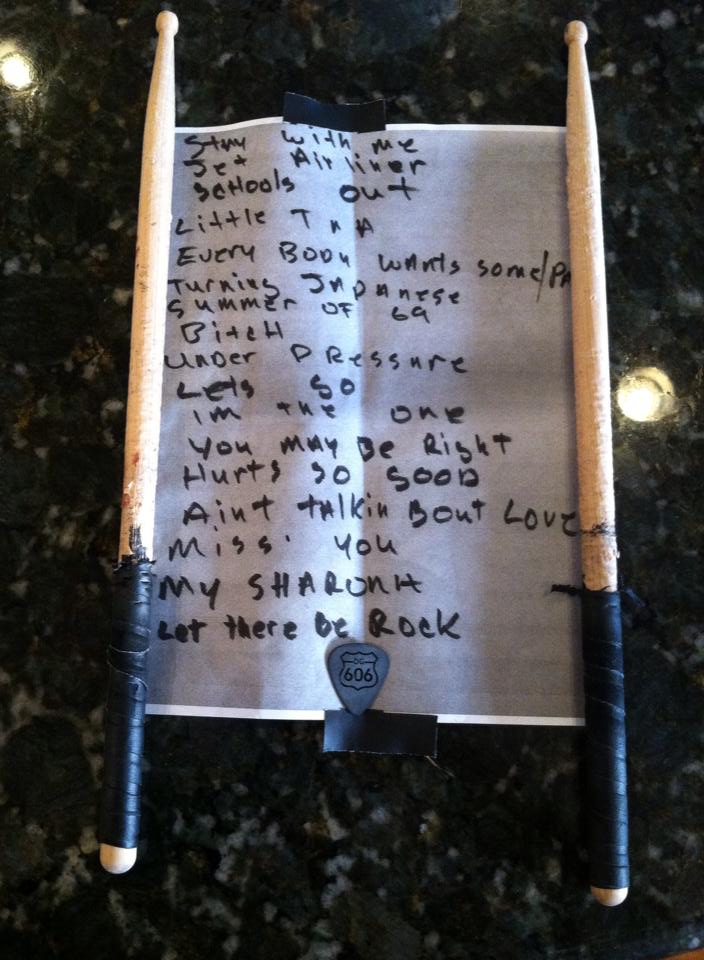 Stay with me
Jet Airliner
Schools out
Little T n A
Every Body wants some/PA
Turning Japanese
Summer of 69
Bitch
Under Pressure
Lets go
im the one
You may Be Right
Hurts so good
Aint talkin Bout Love
Miss You
My SHARONA
Let there be Rock
DG
606